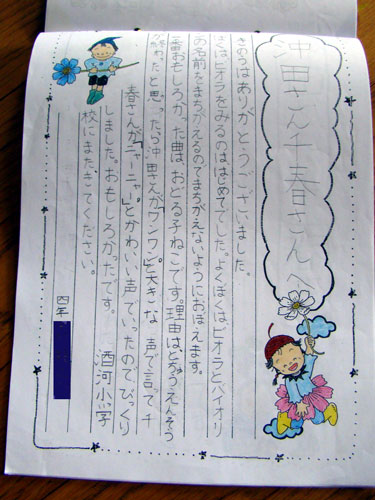 沖田さん千春さんへ
きのうはありがとうございました。
ぼくはビオラをみるのははじめてでした。よくぼくはビオラとバイオリ
お名前をまちがえるのでまちがえないようにおぼえます。
番おもしろかった曲は、おどる子ねこです。理由はとちゅうえんそう
終わったと思ったら沖田さんが「ワンワン」と大きな声で言って千
春さんが「ニャーニャ」とかわいい声でいったのでびっくり
しました。おもしろかったです。 酒河小学
校にまたきてください。
四年